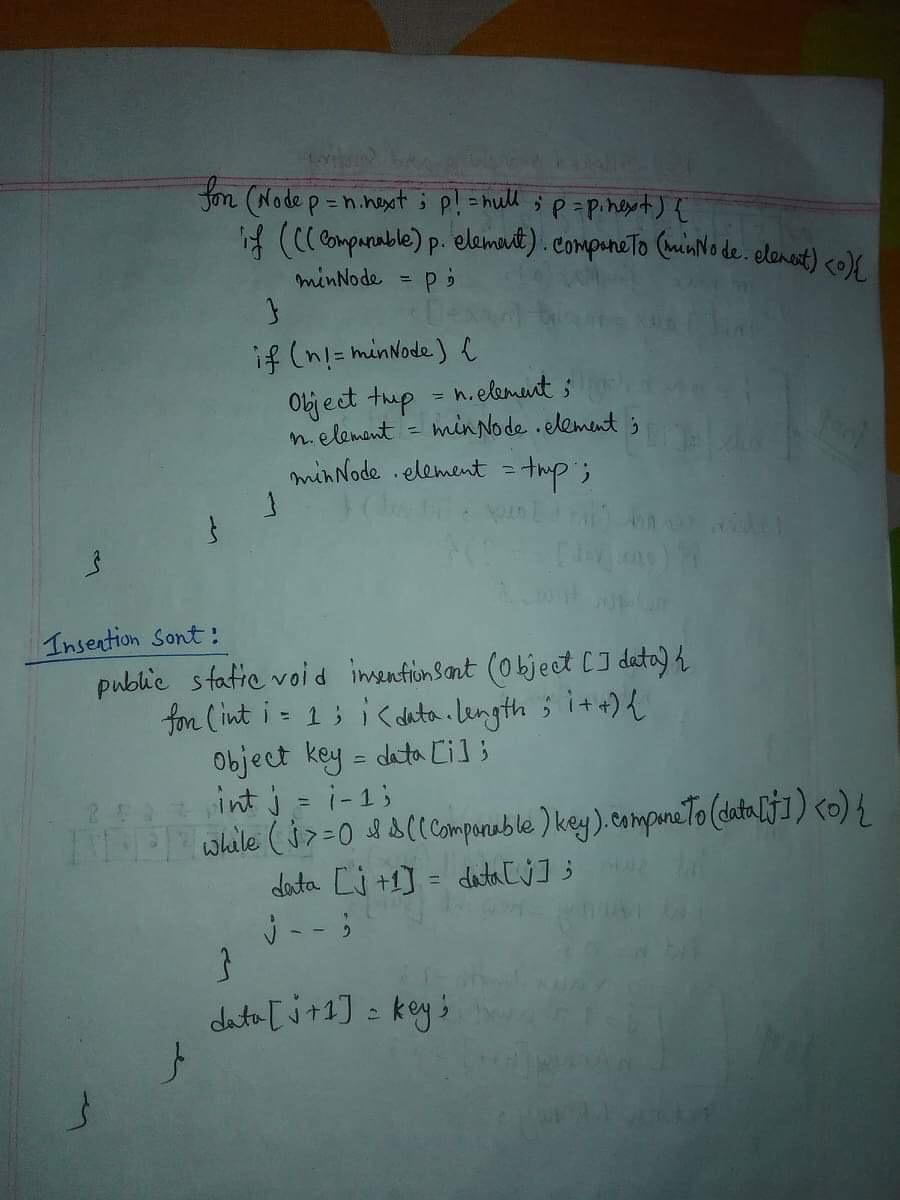 for (Node p = n.next ; p! = null ; p = p.next) {
if (((Comparable) p. element). compareTo (minNode. element) <0){
minNode = p ;
}
if (n!= minNode) {
Object tmp = n.element ;
n. element = minNode .element ;
minNode .element = tmp ;
}
}
}
Insertion Sort :
public static void insertionSort (Object [] data) {
for (int i = 1 ; i < data.length ; i++) {
Object key = data [i] ;
int j = i-1 ;
while (j >=0 && ((Comparable) key). compareTo (data[j]) <0) {
data [j +1] = data[j] ;
j - - ;
}
data[j+1] = key ;
}
}